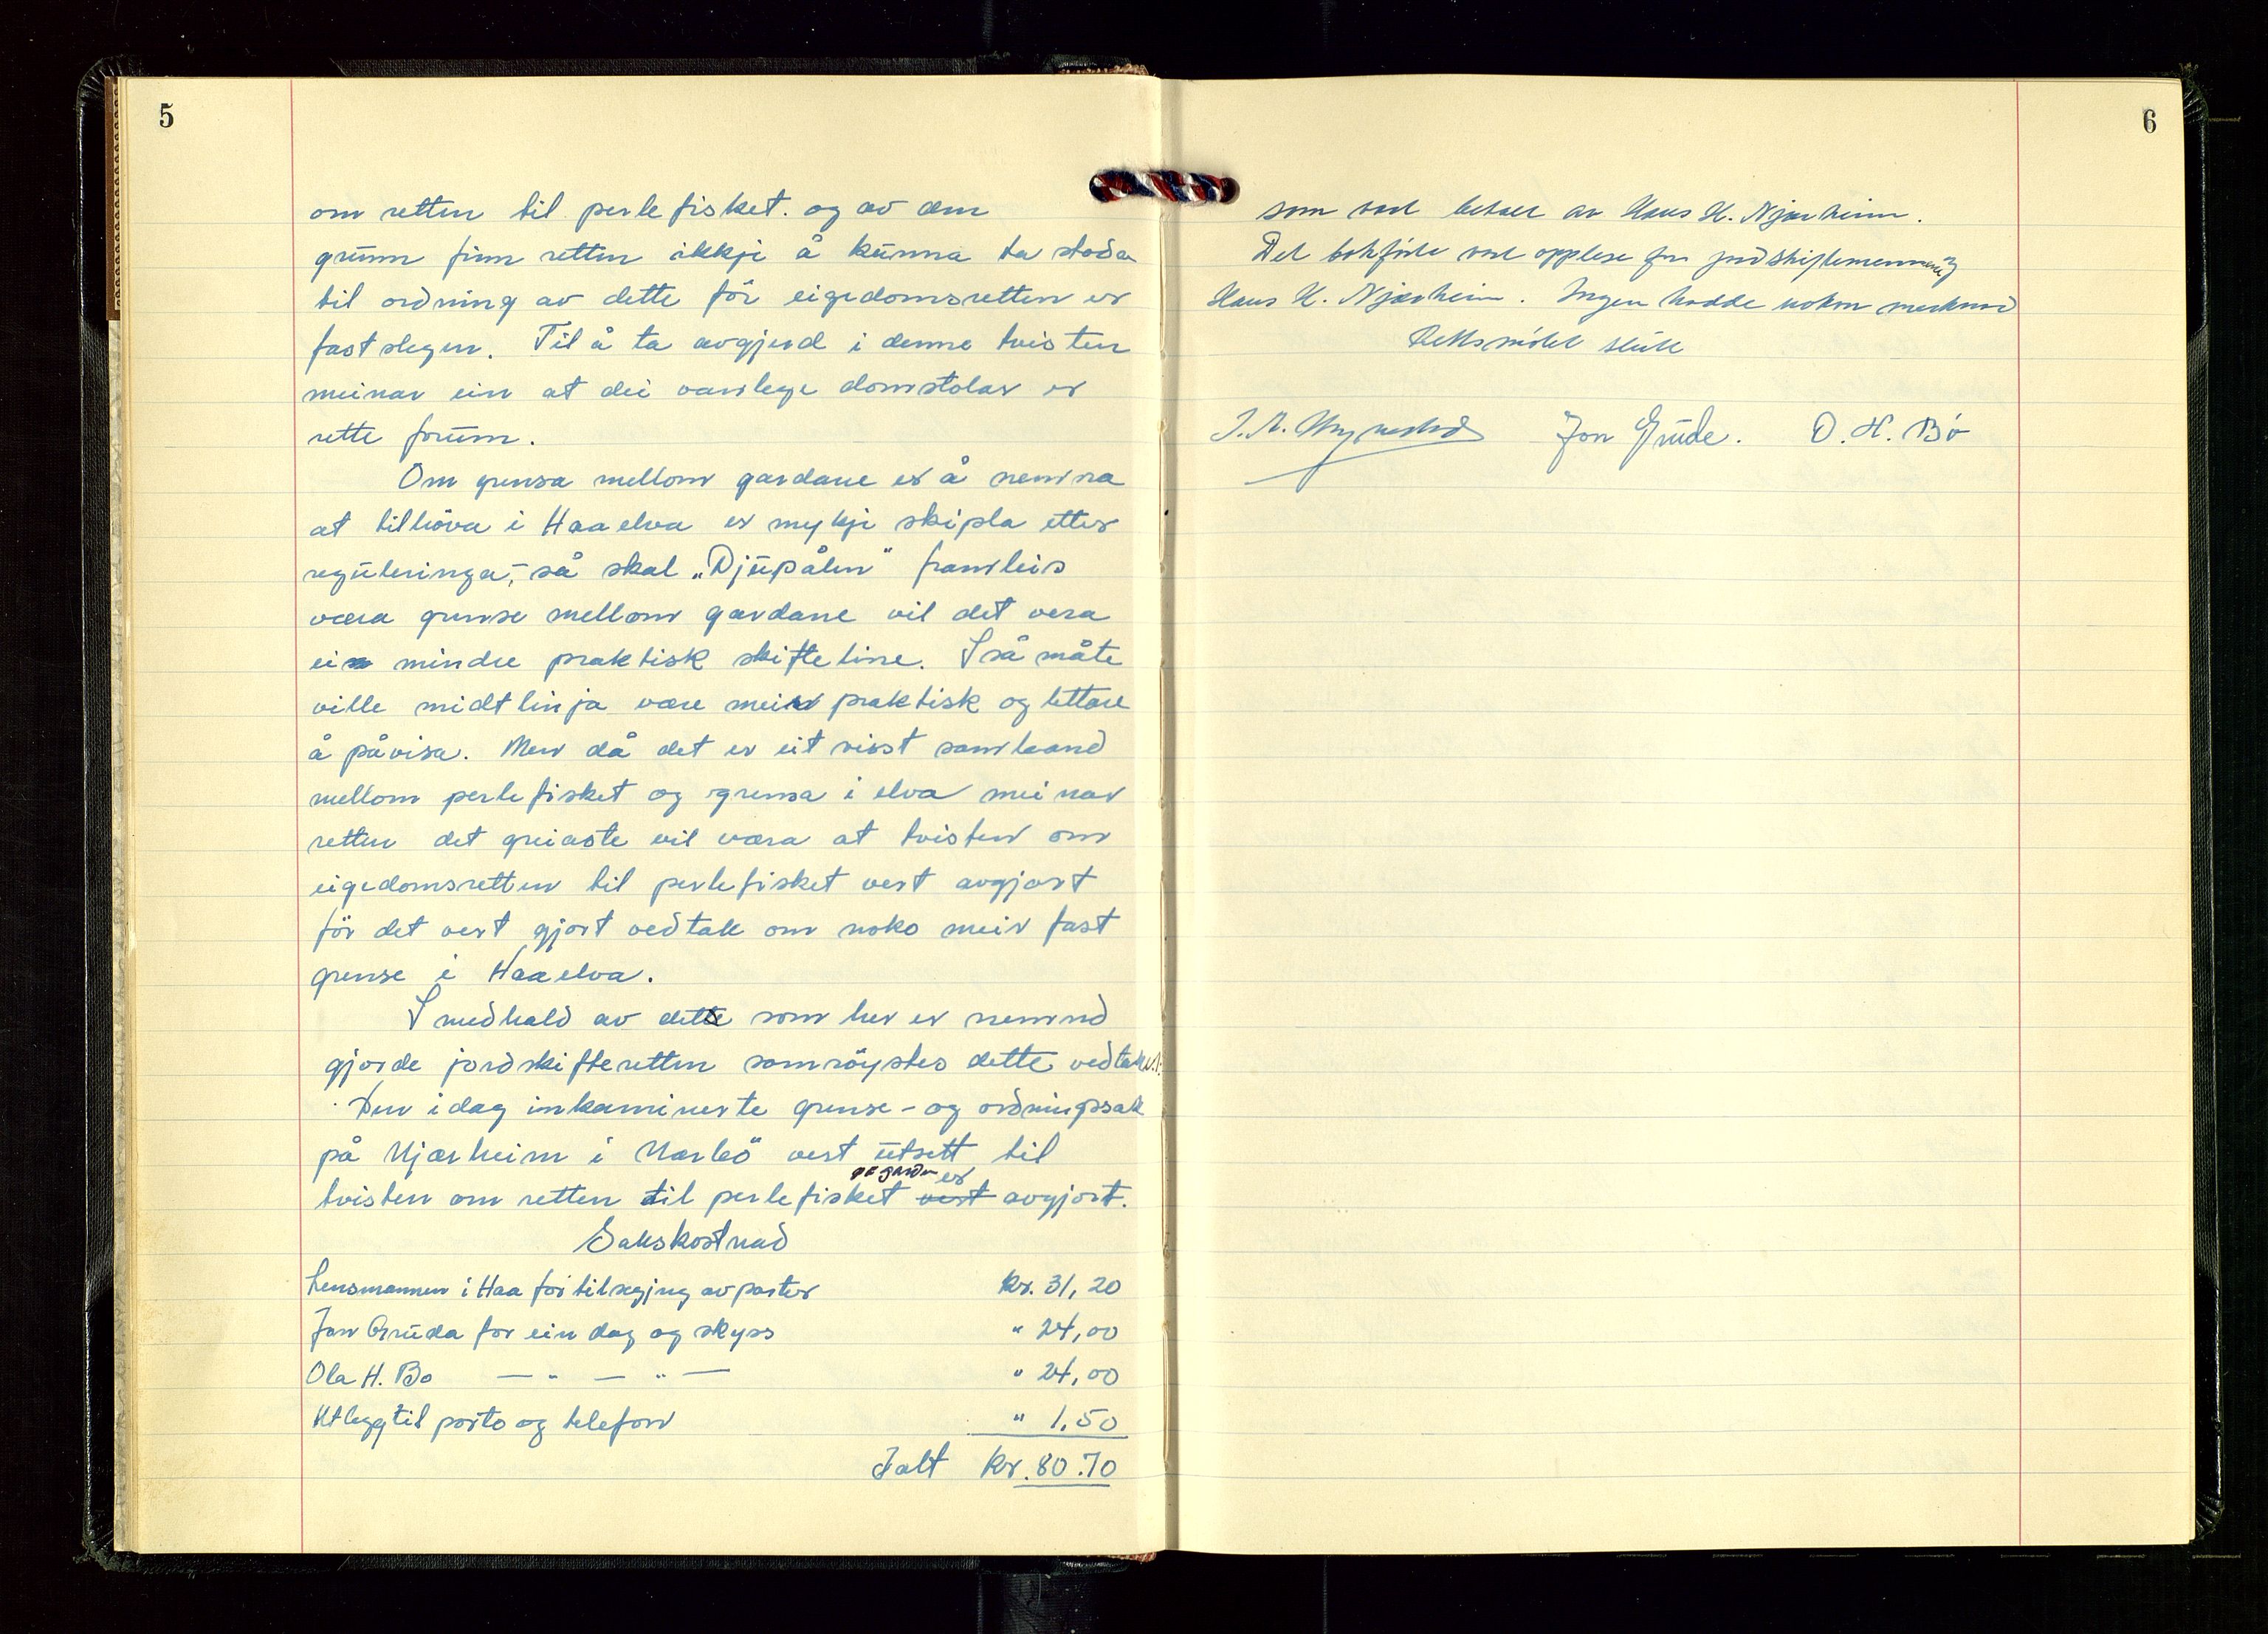 5
om retten til perlefisket. og av den
grunn finn retten ikkje å kunna ta stoda
til ordning av dette för eigedomsretten er
fastslegen. Til å ta avgjerd i denne tvisten
meinar ein at dei vanlege domstolar er
rette forum.
Om grensa mellom gardane er å nemna
at tilhöva i Haaelva er mykje skipla etter
reguleringa,- så skal „Djupålen" framleis
væra grense mellom gardane vil det vera
ei mindre praktisk skifteline. I så måte
ville midtlinja være meir praktisk og lettare
å påvisa. Men då det er eit visst samband
mellom perlefisket og grensa i elva meinar
retten det greiaste vil væra at tvisten om
eigedomsretten til perlefisket vert avgjort
för det vert gjort vedtak om noko meir fast
grense i Haaelva.
I medhald av dette som her er nemnd
gjorde jordskifteretten samröystes dette vedtak
Den idag inkaminerte grense- og ordningssak
på Njærheim i Nærbö vert utsett til
på garden er
tvisten om retten til perlefisket vert avgjort.
Sakskostnad
Lensmannen i Haa for tilsegjing av parter kr. 31,20
Jon Gruda for ein dag og skyss " 24,00
Ola H. Bo — " — " — " 24,00
Utlegg til porto og telefon " 1.50
Ialt kr. 80.70
6
som vart betalt av Hans K. Njærheim.
Det bokförte vart opplese for jordskiftemennene og
Hans K. Njærheim. Ingen hadde noken merknad
Rettsmötet slutt
Jon Grude. O. H. Bö